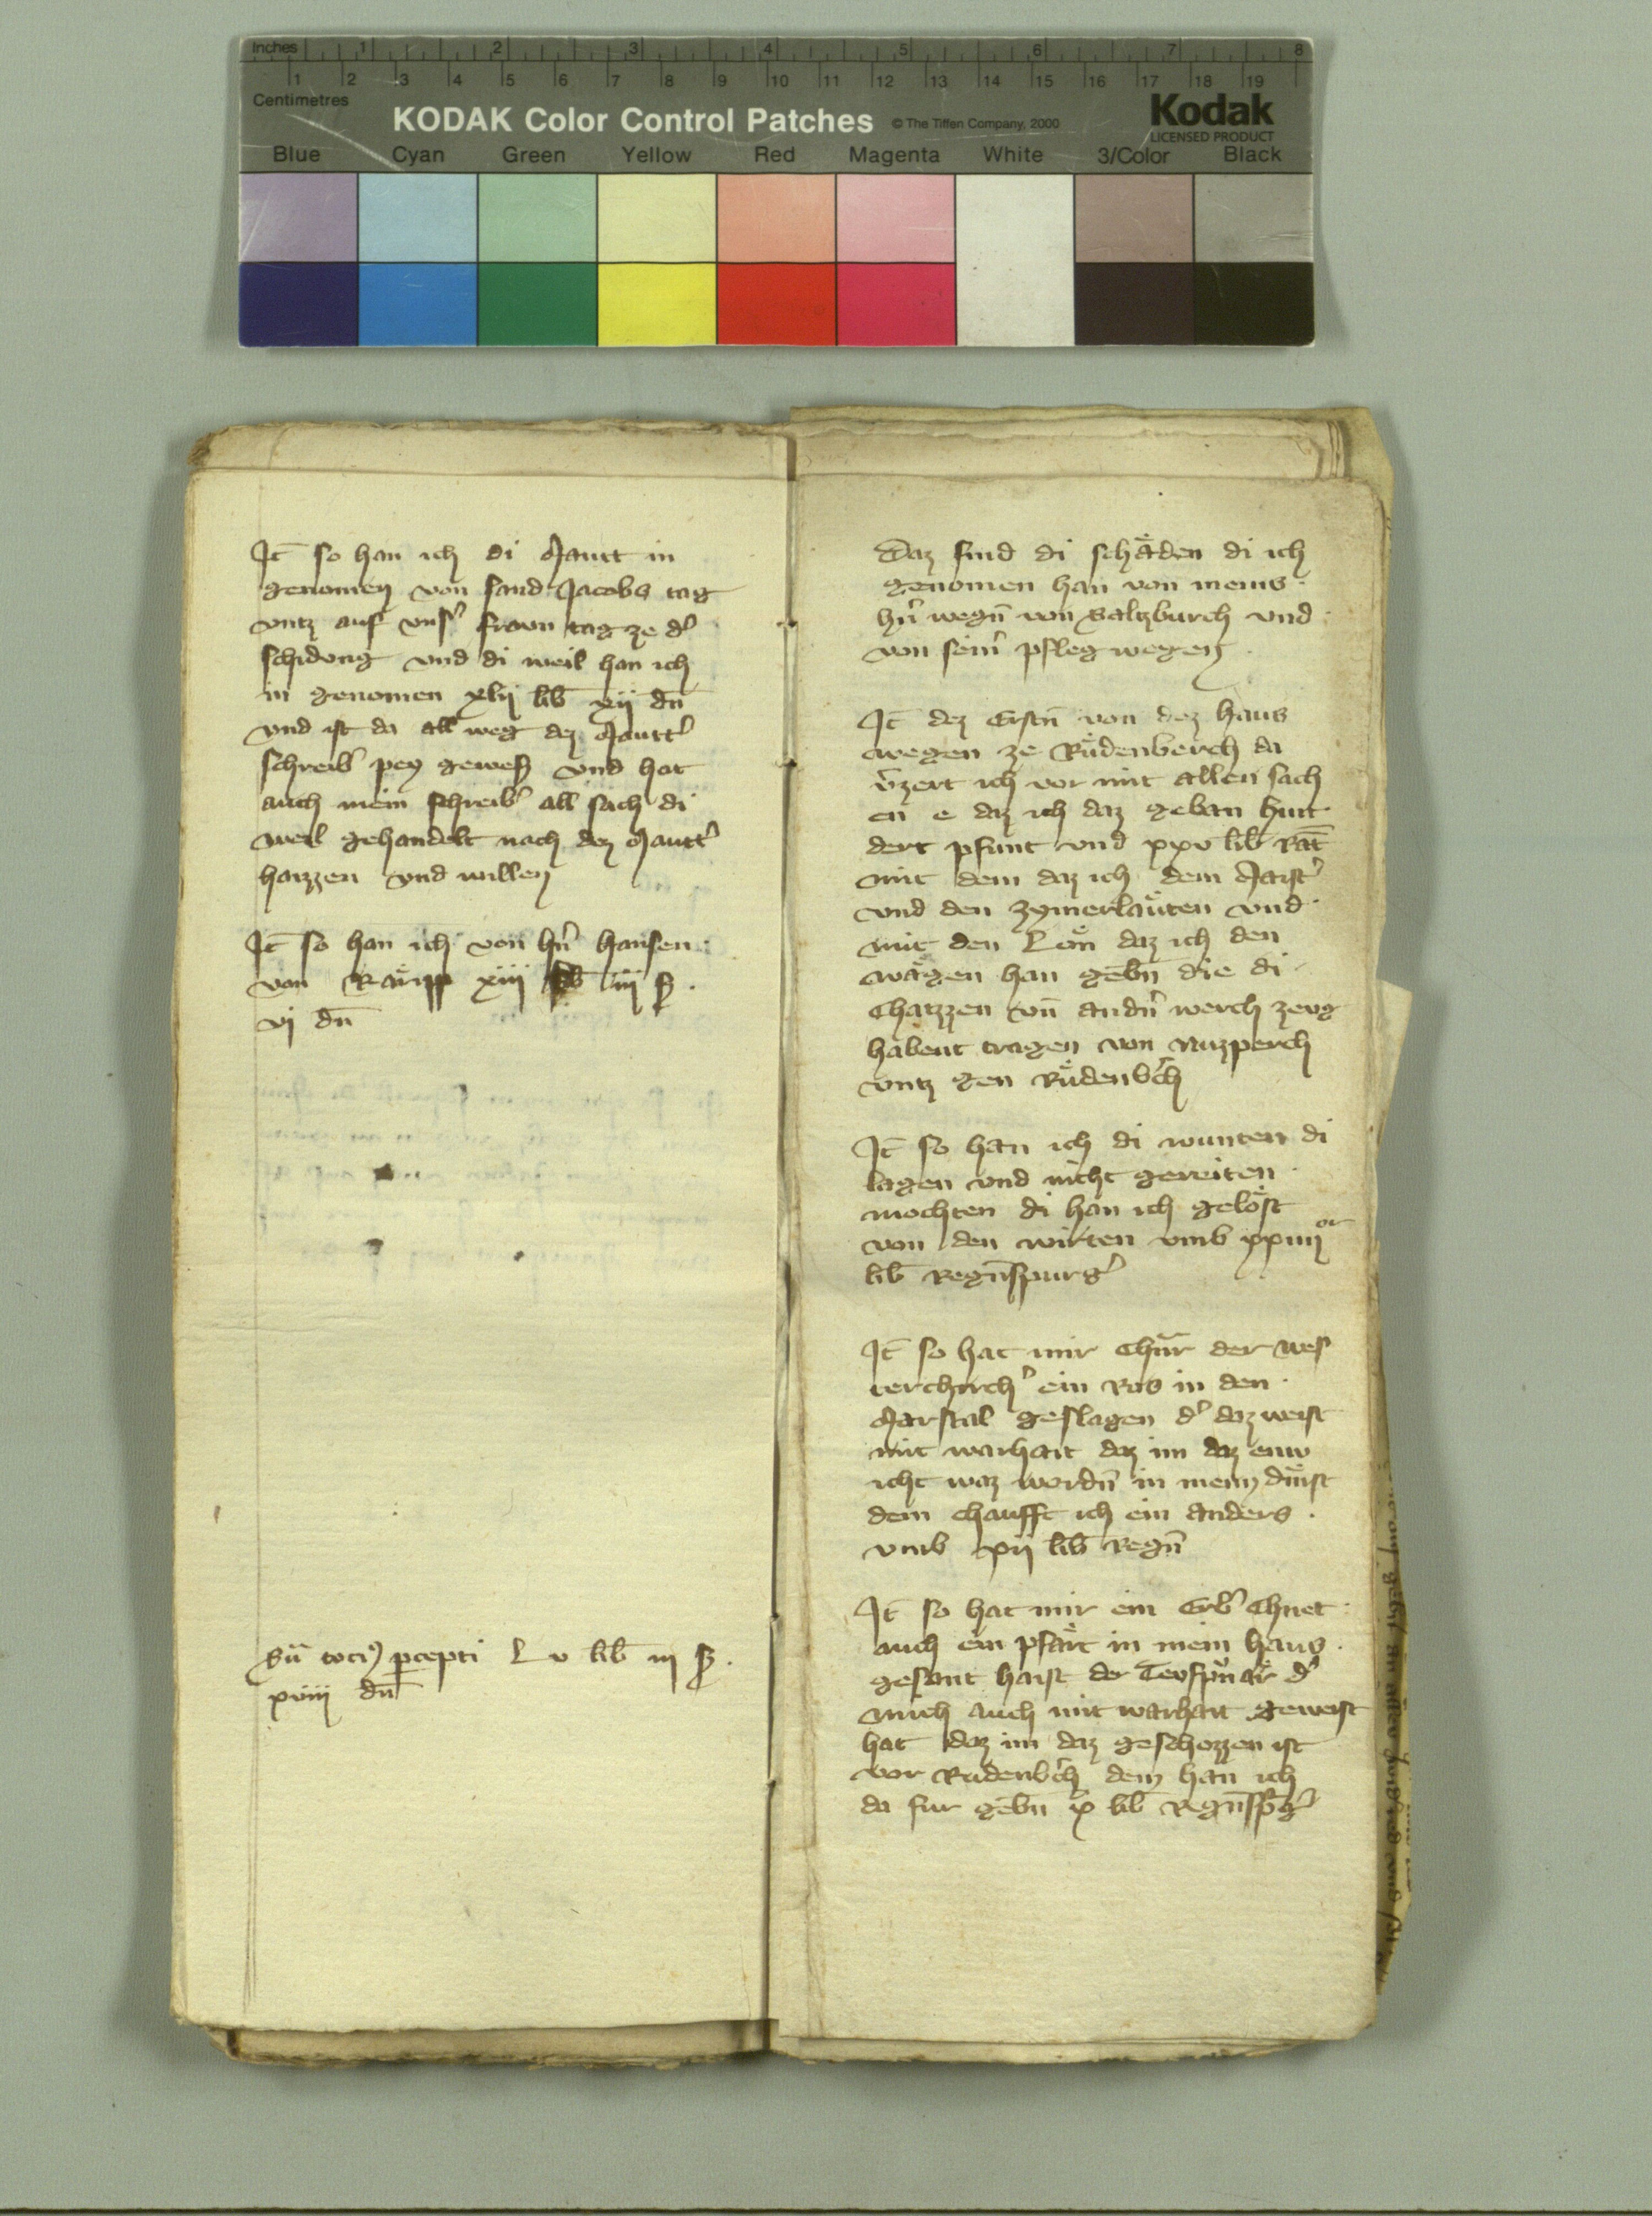 Inches 1 2 3 4 5 6 7 8
1 2 3 4 5 6 7 8 9 10 11 12 13 14 15 16 17 18 19
Centimetres
KODAK Color Control Patches © The Tiffen Company, 2000 Kodak
LICENSED PRODUCT
Blue Cyan Green Yellow Red Magenta White 3/Color Black
It̄ so han ich di Mautt in
genomen von sand Jacobs tag
vntz auf vnsꝰ fravn tag ze dꝰ
schidvng vnd di weil han ich
in genomen xlij lib̄ xij dn̄
vnd ist da all weg dez Mauttꝰ
schreibꝰ pey gewesn vnd hat
auch mein schreibꝰ all sach di
weil gehandelt nach dez Mauttꝰ
haizzen vnd willen
It̄ so han ich von hn̄ꝰ hansen
von xiij lib̄ iij ß .
vj dn̄
Sū tociꝰ p̱cepti L v lib̄ iij ß .
xviij dn̄
Daz sind di schäden di ich
genomen han von meins
hn̄ꝰ wegn̄ von Saltzburch vnd
von seinꝰ pfleg wegen .
It̄ dez Erstn̄ von dez haus
wegen ze Rüdenberch da
v̄zert ich vor mit allen sach
en e daz ich daz geban hun
dert pfunt vnd xxv lib̄ Rat̄
mit dem daz ich dem Maistꝰ
vnd den zymerläuten vnd
mit den Lön daz ich den
wägen han gebn̄ die di
Chatzzen vn̄ andn̄ꝰ werch zevg
habent tragen von Nuzperch
vntz gen Rüdenbꝰch
It̄ so han ich di wunten di
lagen vnd nicht gereiten
mochten di han ich gelöst
von den wirten vmb xxiiij or
lib̄ Regn̄spurgꝰ
It̄ so hat mir Chūr der wes
terchirchꝰ ein Ros in den
Marstal geslagen dꝰ daz weist
mit warhait daz im daz enw
icht waz wordn̄ in meim dinst
dem chaufft ich ein anders .
vmb xij lib̄ Regn̄
It̄ so hat mir ein Erbꝰ Chnet
auch ein pfärt in mein haus .
gesant haist der dꝰ
mich auch mit warhait geweist
hat daz im daz geschozzen ist
vor Rudenbꝰch dem han ich
da fur gebn̄ x lib̄ Regn̄spꝰgꝰ